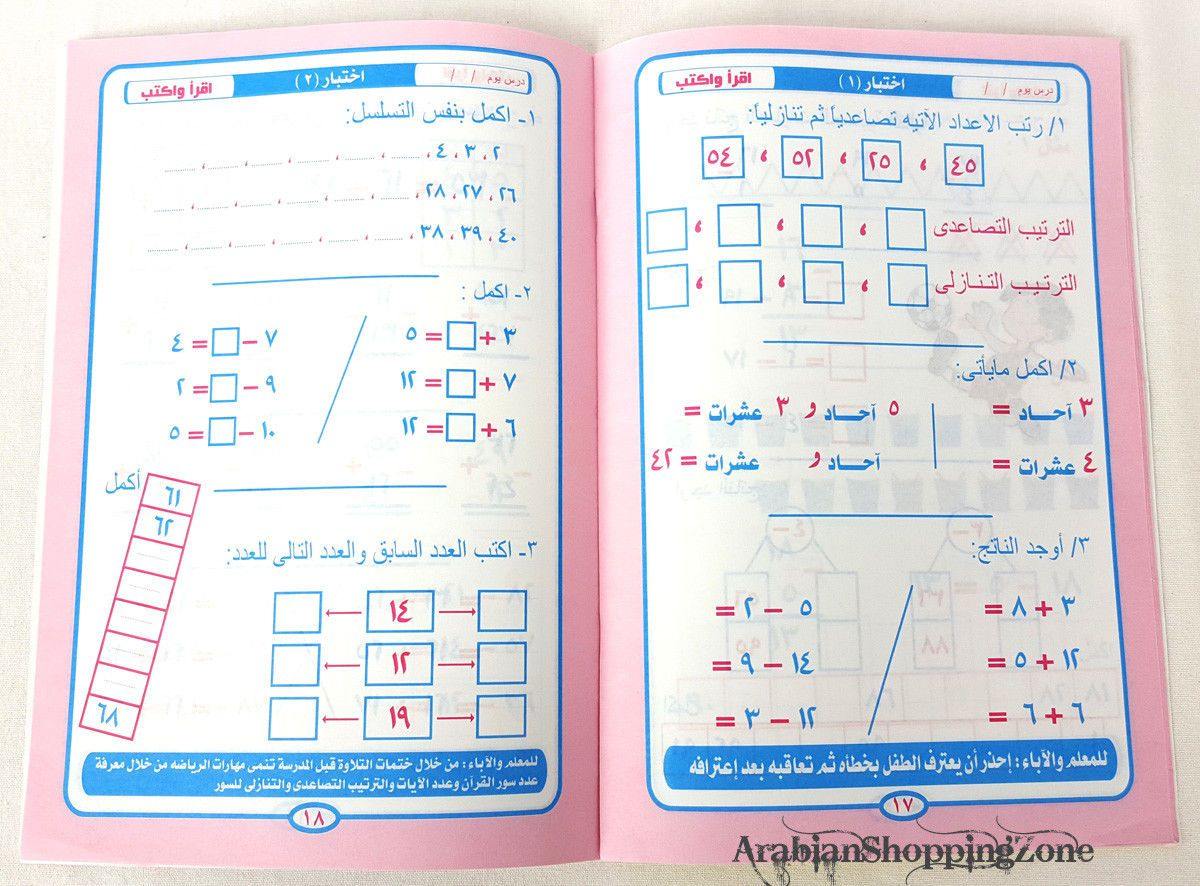 درس يوم / /
اختبار (١)
اقرأ واكتب
١/ رتب الاعداد الآتيه تصاعدياً ثم تنازلياً:
٤٥ ، ٢٥ ، ٥٢ ، ٥٤
الترتيب التصاعدى ، ، ،
الترتيب التنازلى ، ، ،
٢/ اكمل مايأتى:
٣ آحاد = ٥ آحاد و ٣ عشرات =
٤ عشرات = آحاد و عشرات = ٤٢
٣/ أوجد الناتج:
٣ + ٨ = ٥ - ٢ =
١٢ + ٥ = ١٤ - ٩ =
٦ + ٦ = ١٢ - ٣ =
للمعلم والآباء : إحذر أن يعترف الطفل بخطأه ثم تعاقبه بعد إعترافه
١٧
درس يوم / /
اختبار (٢)
اقرأ واكتب
١- اكمل بنفس التسلسل:
٢، ٣، ٤، ...... ، ...... ، ...... ، ...... ، ...... ، ......
٢٦، ٢٧، ٢٨، ...... ، ...... ، ...... ، ...... ، ...... ، ......
٤٠، ٣٩، ٣٨، ...... ، ...... ، ...... ، ...... ، ...... ، ......
٢- اكمل :
٣ + = ٥ ٧ - = ٤
٧ + = ١٢ ٩ - = ٢
٦ + = ١٢ ١٠ - = ٥
أكمل
٦١
٦٢
٦٨
٣- اكتب العدد السابق والعدد التالى للعدد:
١٤
١٢
١٩
للمعلم والآباء : من خلال ختمات التلاوة قبل المدرسة تنمى مهارات الرياضه من خلال معرفة
عدد سور القرآن وعدد الآيات والترتيب التصاعدى والتنازلى للسور
١٨
ArabianShoppingZone